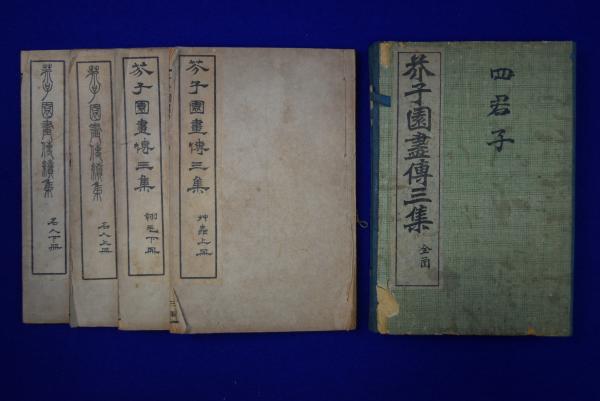 芥子園畫傳續集
名人下冊
芥子園畫傳續集
名人上冊
芥子園畫傳三集
翎毛下冊
芥子園畫傳三集
艸蟲上冊
芥子園畫傳三集
全函
四君子